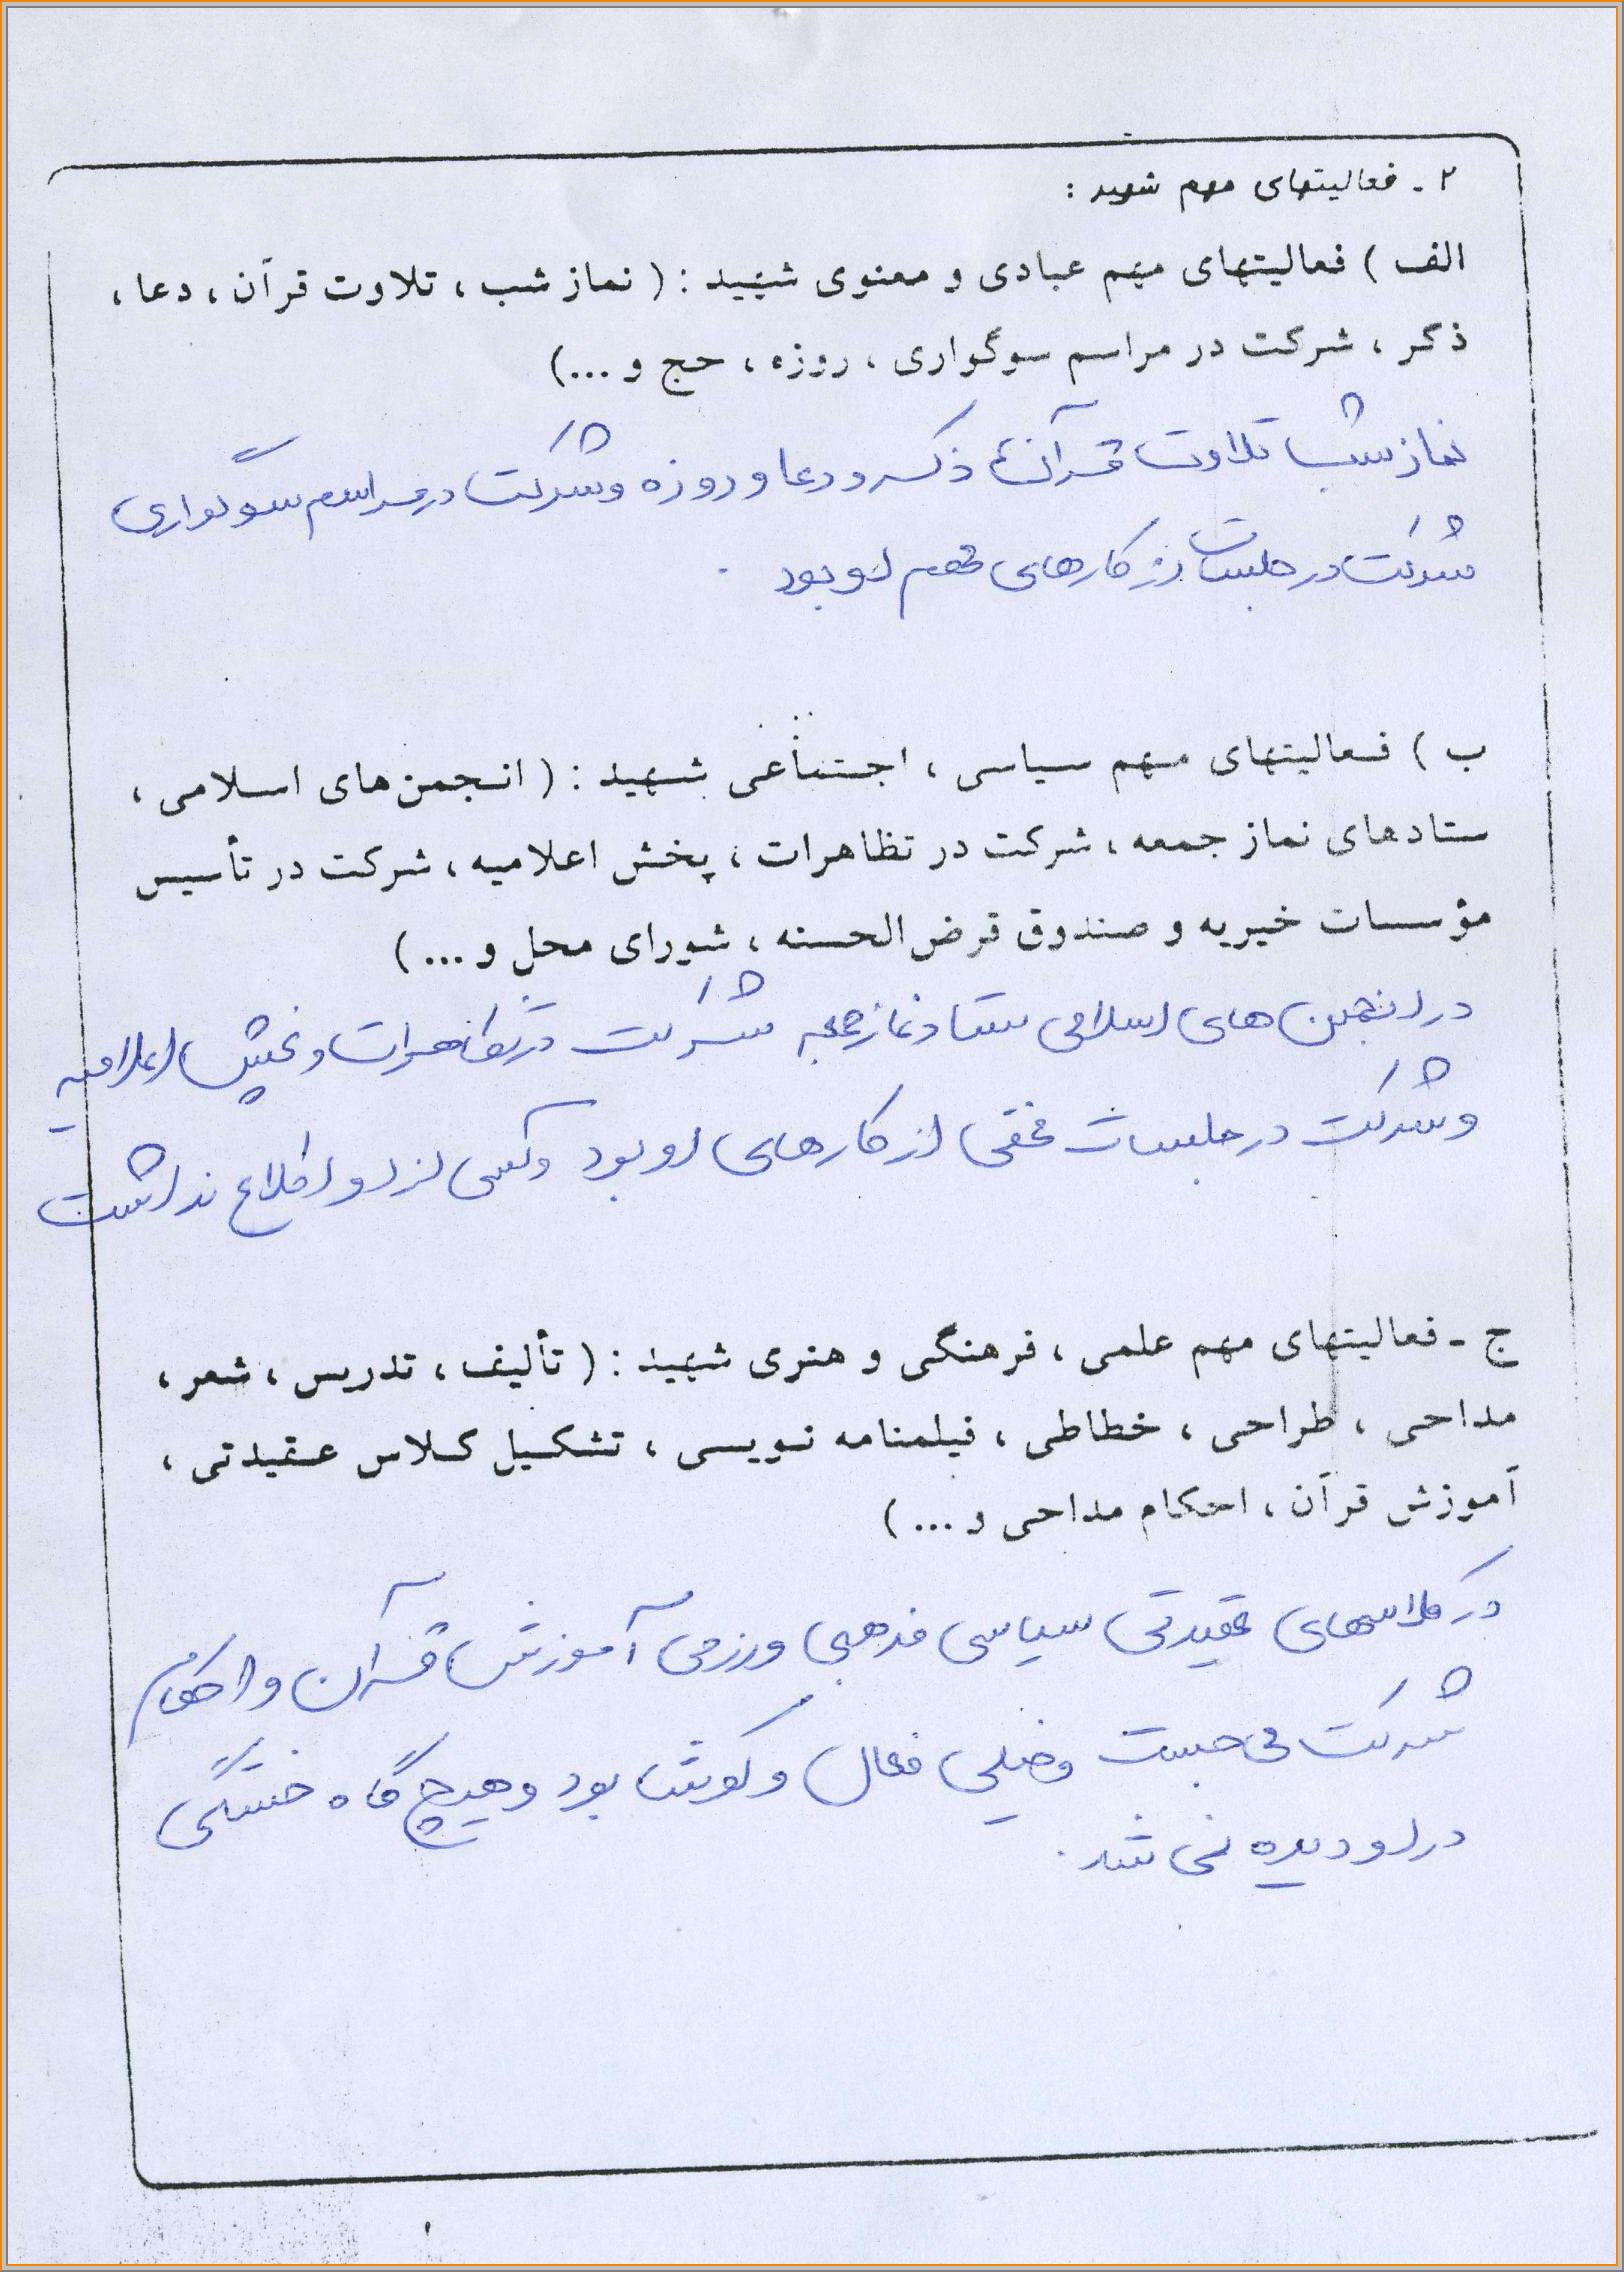 ۲ ـ فعالیتهای مهم شهید :
الف ) فعالیتهای مهم عبادی و معنوی شهید : ( نماز شب ، تلاوت قرآن ، دعا ،
ذکر ، شرکت در مراسم سوگواری ، روزه ، حج و ...)
نماز شب تلاوت قرآن ذکر و دعا و روزه و شرکت در مراسم سوگواری
شرکت در جلسات از کارهای مهم او بود .
ب ) فعالیتهای مهم سیاسی ، اجتماعی شهید : ( انجمن های اسلامی ،
ستادهای نماز جمعه ، شرکت در تظاهرات ، پخش اعلامیه ، شرکت در تأسیس
مؤسسات خیریه و صندوق قرض الحسنه ، شورای محل و ... )
در انجمن های اسلامی ستاد نماز جمعه شرکت در تظاهرات و پخش اعلامیه
و شرکت در جلسات مخفی از کارهای او بود و کسی از او اطلاع نداشت
ج ـ فعالیتهای مهم علمی ، فرهنگی و هنری شهید : ( تألیف ، تدریس ، شعر ،
مداحی ، طراحی ، خطاطی ، فیلمنامه نویسی ، تشکیل کلاس عقیدتی ،
آموزش قرآن ، احکام مداحی و ... )
در کلاسهای عقیدتی سیاسی مذهبی ورزمی آموزش قرآن و احکام
شرکت می جست و خیلی فعال و کوشا بود و هیچ گاه خستگی
در او دیده نمی شد .